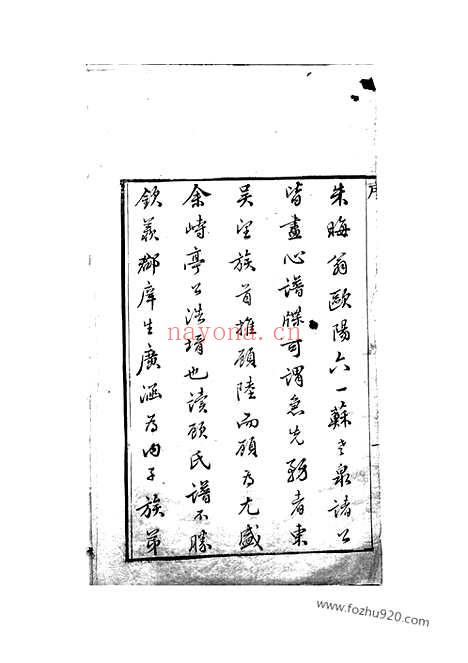 序
朱晦翁歐陽六一蘇老泉諸公
皆盡心譜牒可謂急先務者東
吳望族首推顧陸而顧為尤盛
余峙亭公浩壻也讀顧氏譜不勝
欽羨鄰庠生廣涵為內子族弟
nayona.cn
www.fozhu920.com